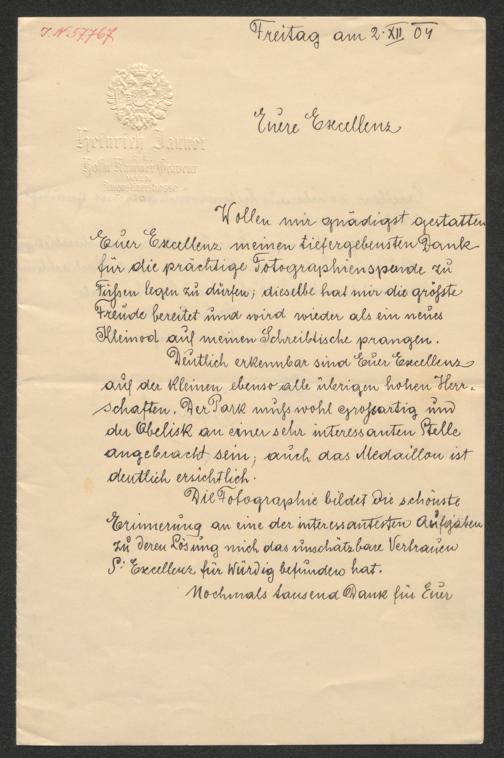 I. N. 57767
Freitag am 2. XII. 04
Heinrich Jauner
Euere Excellenz
Wollen mir gnädigst gestatten
Euer Excellenz meinen tiefergebensten Dank
für die prächtige Fotographienspende zu
Füßen legen zu dürfen; dieselbe hat mir die größte
Freude bereitet und wird wieder als ein neues
Kleinod auf meinen Schreibtische prangen.
Deutlich erkennbar sind Euer Excellenz
auf der kleinen ebenso alle übrigen hohen Herr-
schaften. Der Park muß wohl großartig und
der Obelisk an einer sehr interessanten Stelle
angebracht sein; auch das Medaillon ist
deutlich ersichtlich.
Die Fotographie bildet die schönste
Erinnerung an eine der interessantesten Aufgaben
zu deren Lösung mich das unschätzbare Vertrauen
Sr. Excellenz für würdig befunden hat.
Nochmals tausend Dank für Euer